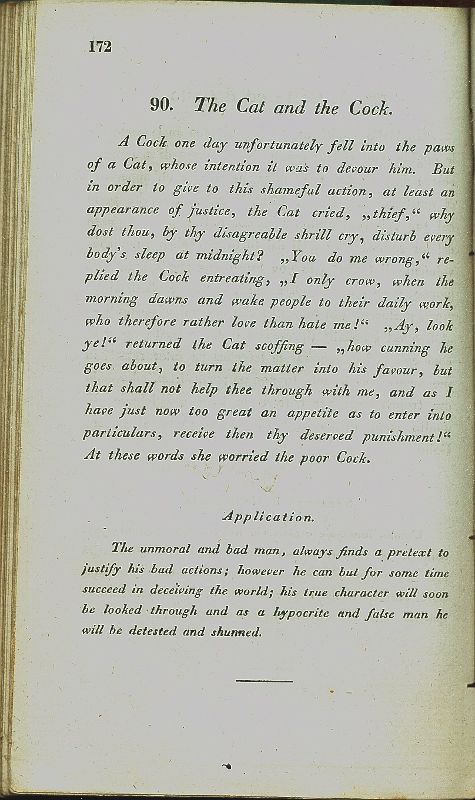 172
90. The Cat and the Cock.
A Cock one day unfortunately fell into the paws
of a Cat, whose intention it was to devour him. But
in order to give to this shameful action, at least an
appearance of justice, the Cat cried, „thief,“ why
dost thou, by thy disagreable shrill cry, disturb every
body's sleep at midnight? „You do me wrong,“ re-
plied the Cock entreating, „I only crow, when the
morning dawns and wake people to their daily work,
who therefore rather love than hate me!“ „Ay, look
ye!“ returned the Cat scoffing — „how cunning he
goes about, to turn the matter into his favour, but
that shall not help thee through with me, and as I
have just now too great an appetite as to enter into
particulars, receive then thy deserved punishment!“
At these words she worried the poor Cock.
Application.
The unmoral and bad man, always finds a pretext to
justify his bad actions; however he can but for some time
succeed in deceiving the world; his true character will soon
be looked through and as a hypocrite and false man he
will be detested and shunned.